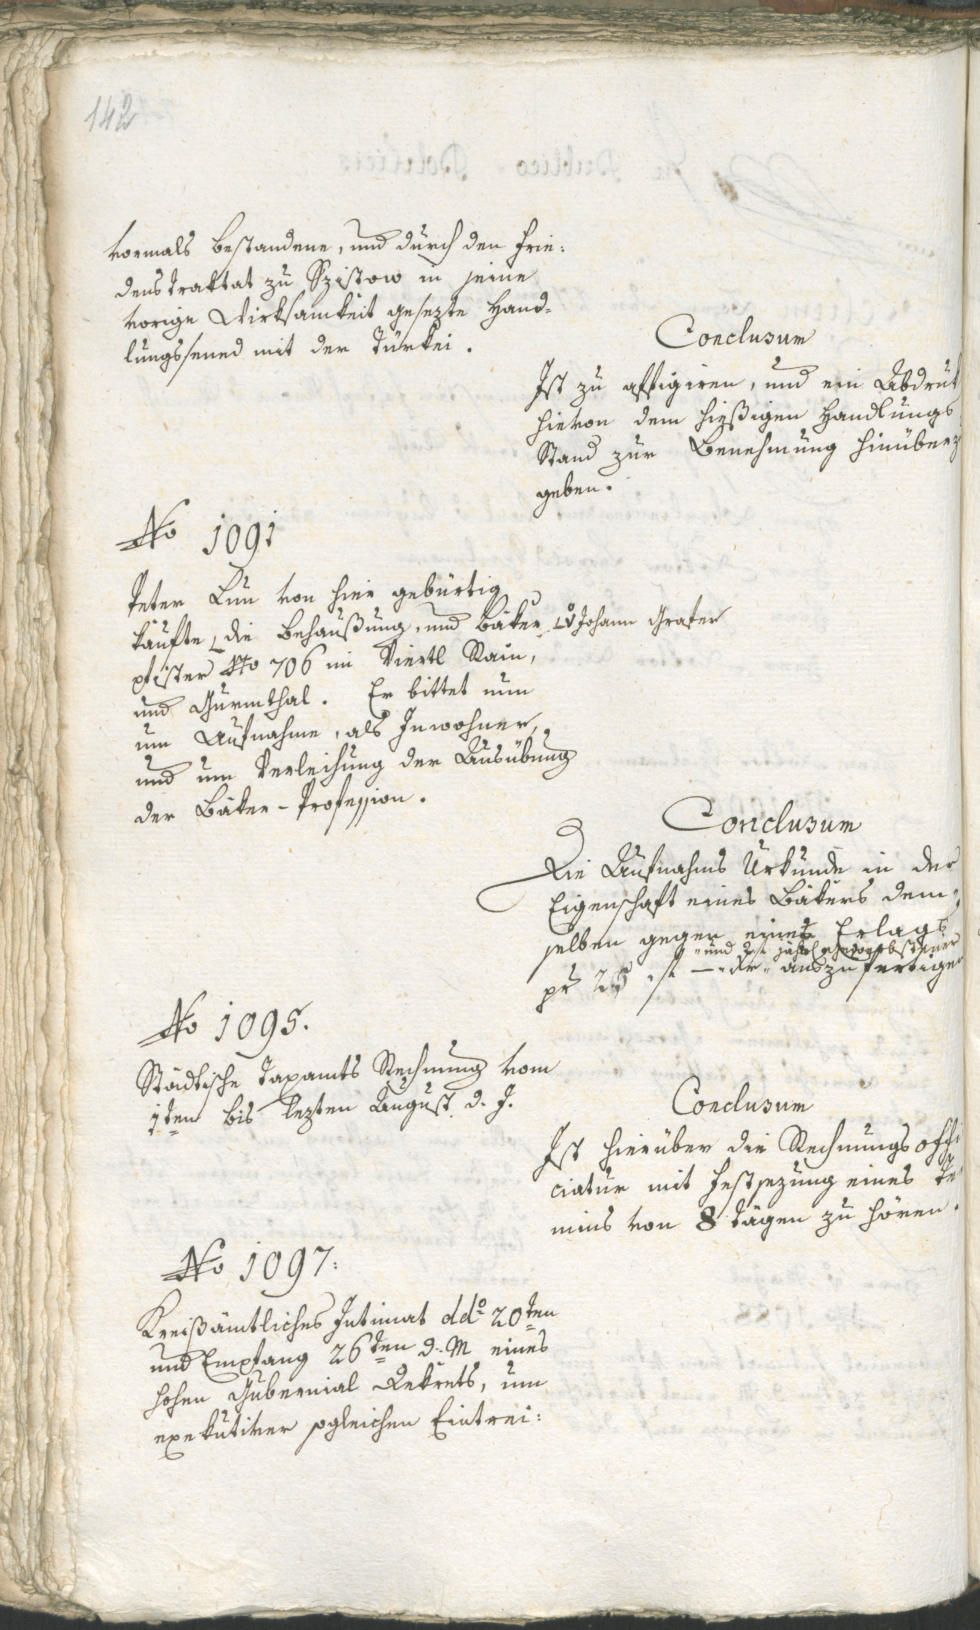 142
vormals bestandene, und durch den Frie:
denstraktat zu Szistow in seine
vorige Wirksamkeit gesezte Hand-
lungssened mit der Türkei.
Conclusum
Ist zu affigiren, und ein Abdruk
hievon dem hießigen Handlungs
Stand zur Benehmung hinüberz
geben.
No 1091
Peter Lun von hier gebürtig
kaufte die Behaußung, und Bäker
Johann Grafer
pfister No 706 im Viertl Rain,
und Gurmthal. Er bittet nun
um Aufnahme, als Inwohner,
und um Verleihung der Ausübung
der Bäker-Profession.
Conclusum
Die Aufnahms Urkunde in der
Eigenschaft eines Bäkers dem-
selben gegen eines Erlags
und 2 f jährl
pr 25 f - xr auszufertige
No 1095.
Städtische Taxamts Rechnung vom
1ten bis lezten August d. J.
Conclusum
Ist hierüber die Rechnungs offi
ciatur mit Festsezung eines Te
mins von 8 Tägen zu hören.
No 1097:
Kreißämtliches Intimat ddo 20ten
und Empfang 26ten d: M eines
hohen Gubernial Dekrets, um
exekutiver sogleichen Eintrei: